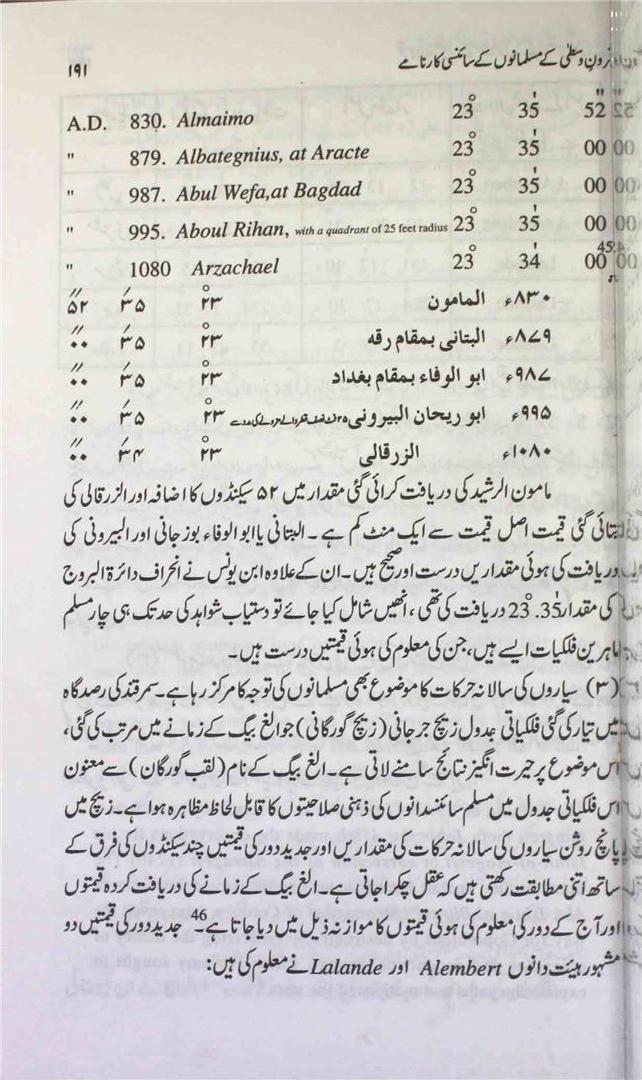 ۱۹۱ قرونِ وسطیٰ کے مسلمانوں کے سائنسی کارنامے
A.D. 830. Almaimo 23° 35' 52"
" 879. Albategnius, at Aracte 23° 35' 00
" 987. Abul Wefa,at Bagdad 23° 35' 00
" 995. Aboul Rihan, with a quadrant of 25 feet radius 23° 35' 00
" 1080 Arzachael 23° 34' 00
۸۳۰ء المامون ۲۳° ۳۵′ ۵۲″
۸۷۹ء البتانی بمقام رقہ ۲۳° ۳۵′ ۰۰″
۹۸۷ء ابو الوفاء بمقام بغداد ۲۳° ۳۵′ ۰۰″
۹۹۵ء ابو ریحان البیرونی ۲۵ فٹ نصف قطر والے ربع کی مدد سے ۲۳° ۳۵′ ۰۰″
۱۰۸۰ء الزرقالی ۲۳° ۳۴′ ۰۰″
مامون الرشید کی دریافت کرائی گئی مقدار میں ۵۲ سیکنڈوں کا اضافہ اور الزرقالی کی
بتائی گئی قیمت اصل قیمت سے ایک منٹ کم ہے۔ البتانی یا ابو الوفاء بوزجانی اور البیرونی کی
دریافت کی ہوئی مقداریں درست اور صحیح ہیں۔ ان کے علاوہ ابن یونس نے انحراف دائرۃ البروج
کی مقدار 23°.35' دریافت کی تھی، انھیں شامل کیا جائے تو دستیاب شواہد کی حد تک ہی چار مسلم
ماہرین فلکیات ایسے ہیں، جن کی معلوم کی ہوئی قیمتیں درست ہیں۔
(۳) سیاروں کی سالانہ حرکات کا موضوع بھی مسلمانوں کی توجہ کا مرکز رہا ہے۔ سمرقند کی رصدگاہ
میں تیار کی گئی فلکیاتی جدول زیچ جرجانی (زیچ گورگانی) جو الغ بیگ کے زمانے میں مرتب کی گئی،
اس موضوع پر حیرت انگیز نتائج سامنے لاتی ہے۔ الغ بیگ کے نام (لقب گورگان) سے معنون
اس فلکیاتی جدول میں مسلم سائنسدانوں کی ذہنی صلاحیتوں کا قابل لحاظ مظاہرہ ہوا ہے۔ زیچ میں
پانچ روشن سیاروں کی سالانہ حرکات کی مقداریں اور جدید دور کی قیمتیں چند سیکنڈوں کی فرق کے
ساتھ اتنی مطابقت رکھتی ہیں کہ عقل چکرا جاتی ہے۔ الغ بیگ کے زمانے کی دریافت کردہ قیمتوں
اور آج کے دور کی معلوم کی ہوئی قیمتوں کا موازنہ ذیل میں دیا جاتا ہے۔46 جدید دور کی قیمتیں دو
مشہور ہیئت دانوں Alembert اور Lalande نے معلوم کی ہیں: